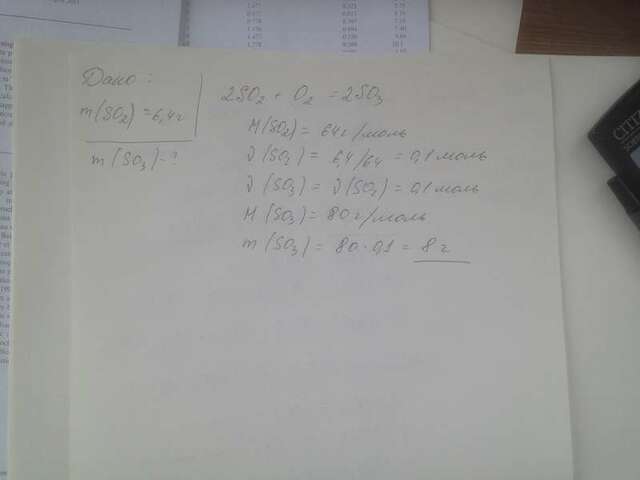 Дано:
m(SO₂) = 6,4г
m(SO₃) = ?
2SO₂ + O₂ = 2SO₃
M(SO₂) = 64г/моль
ν(SO₂) = 6,4/64 = 0,1 моль
ν(SO₃) = ν(SO₂) = 0,1 моль
M(SO₃) = 80г/моль
m(SO₃) = 80·0,1 = 8г